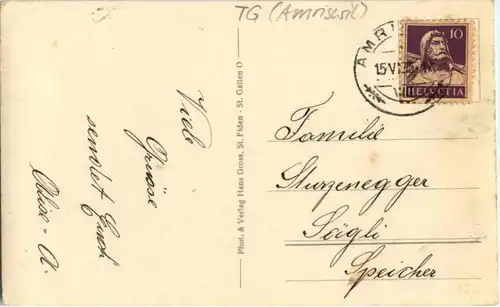 TG (Amriswil)
Viele
Grüsse
sendet Euch
Phot. & Verlag Hans Gross, St. Fiden - St. Gallen O
AMRI
15.VI
10
HELVETIA
Familie
Sturzenegger
Sägli
Speicher